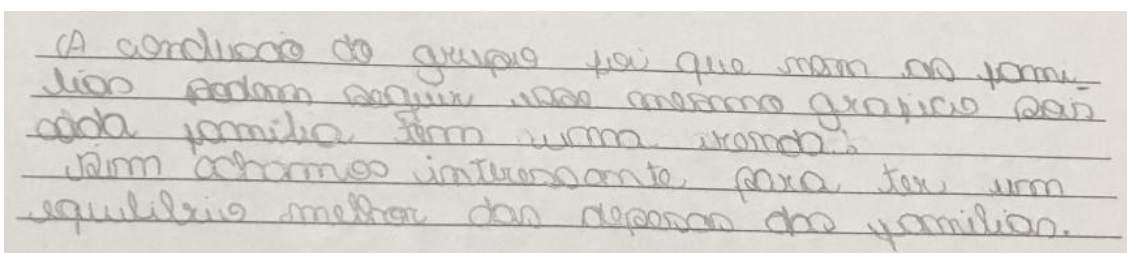 A conclusão do grupo foi que nem as fami-
lias podem seguir esse mesmo grafico pois
cada familia tem uma renda.
Sim achamos interessante para ter um
equilibrio melhor das depesas das familias.